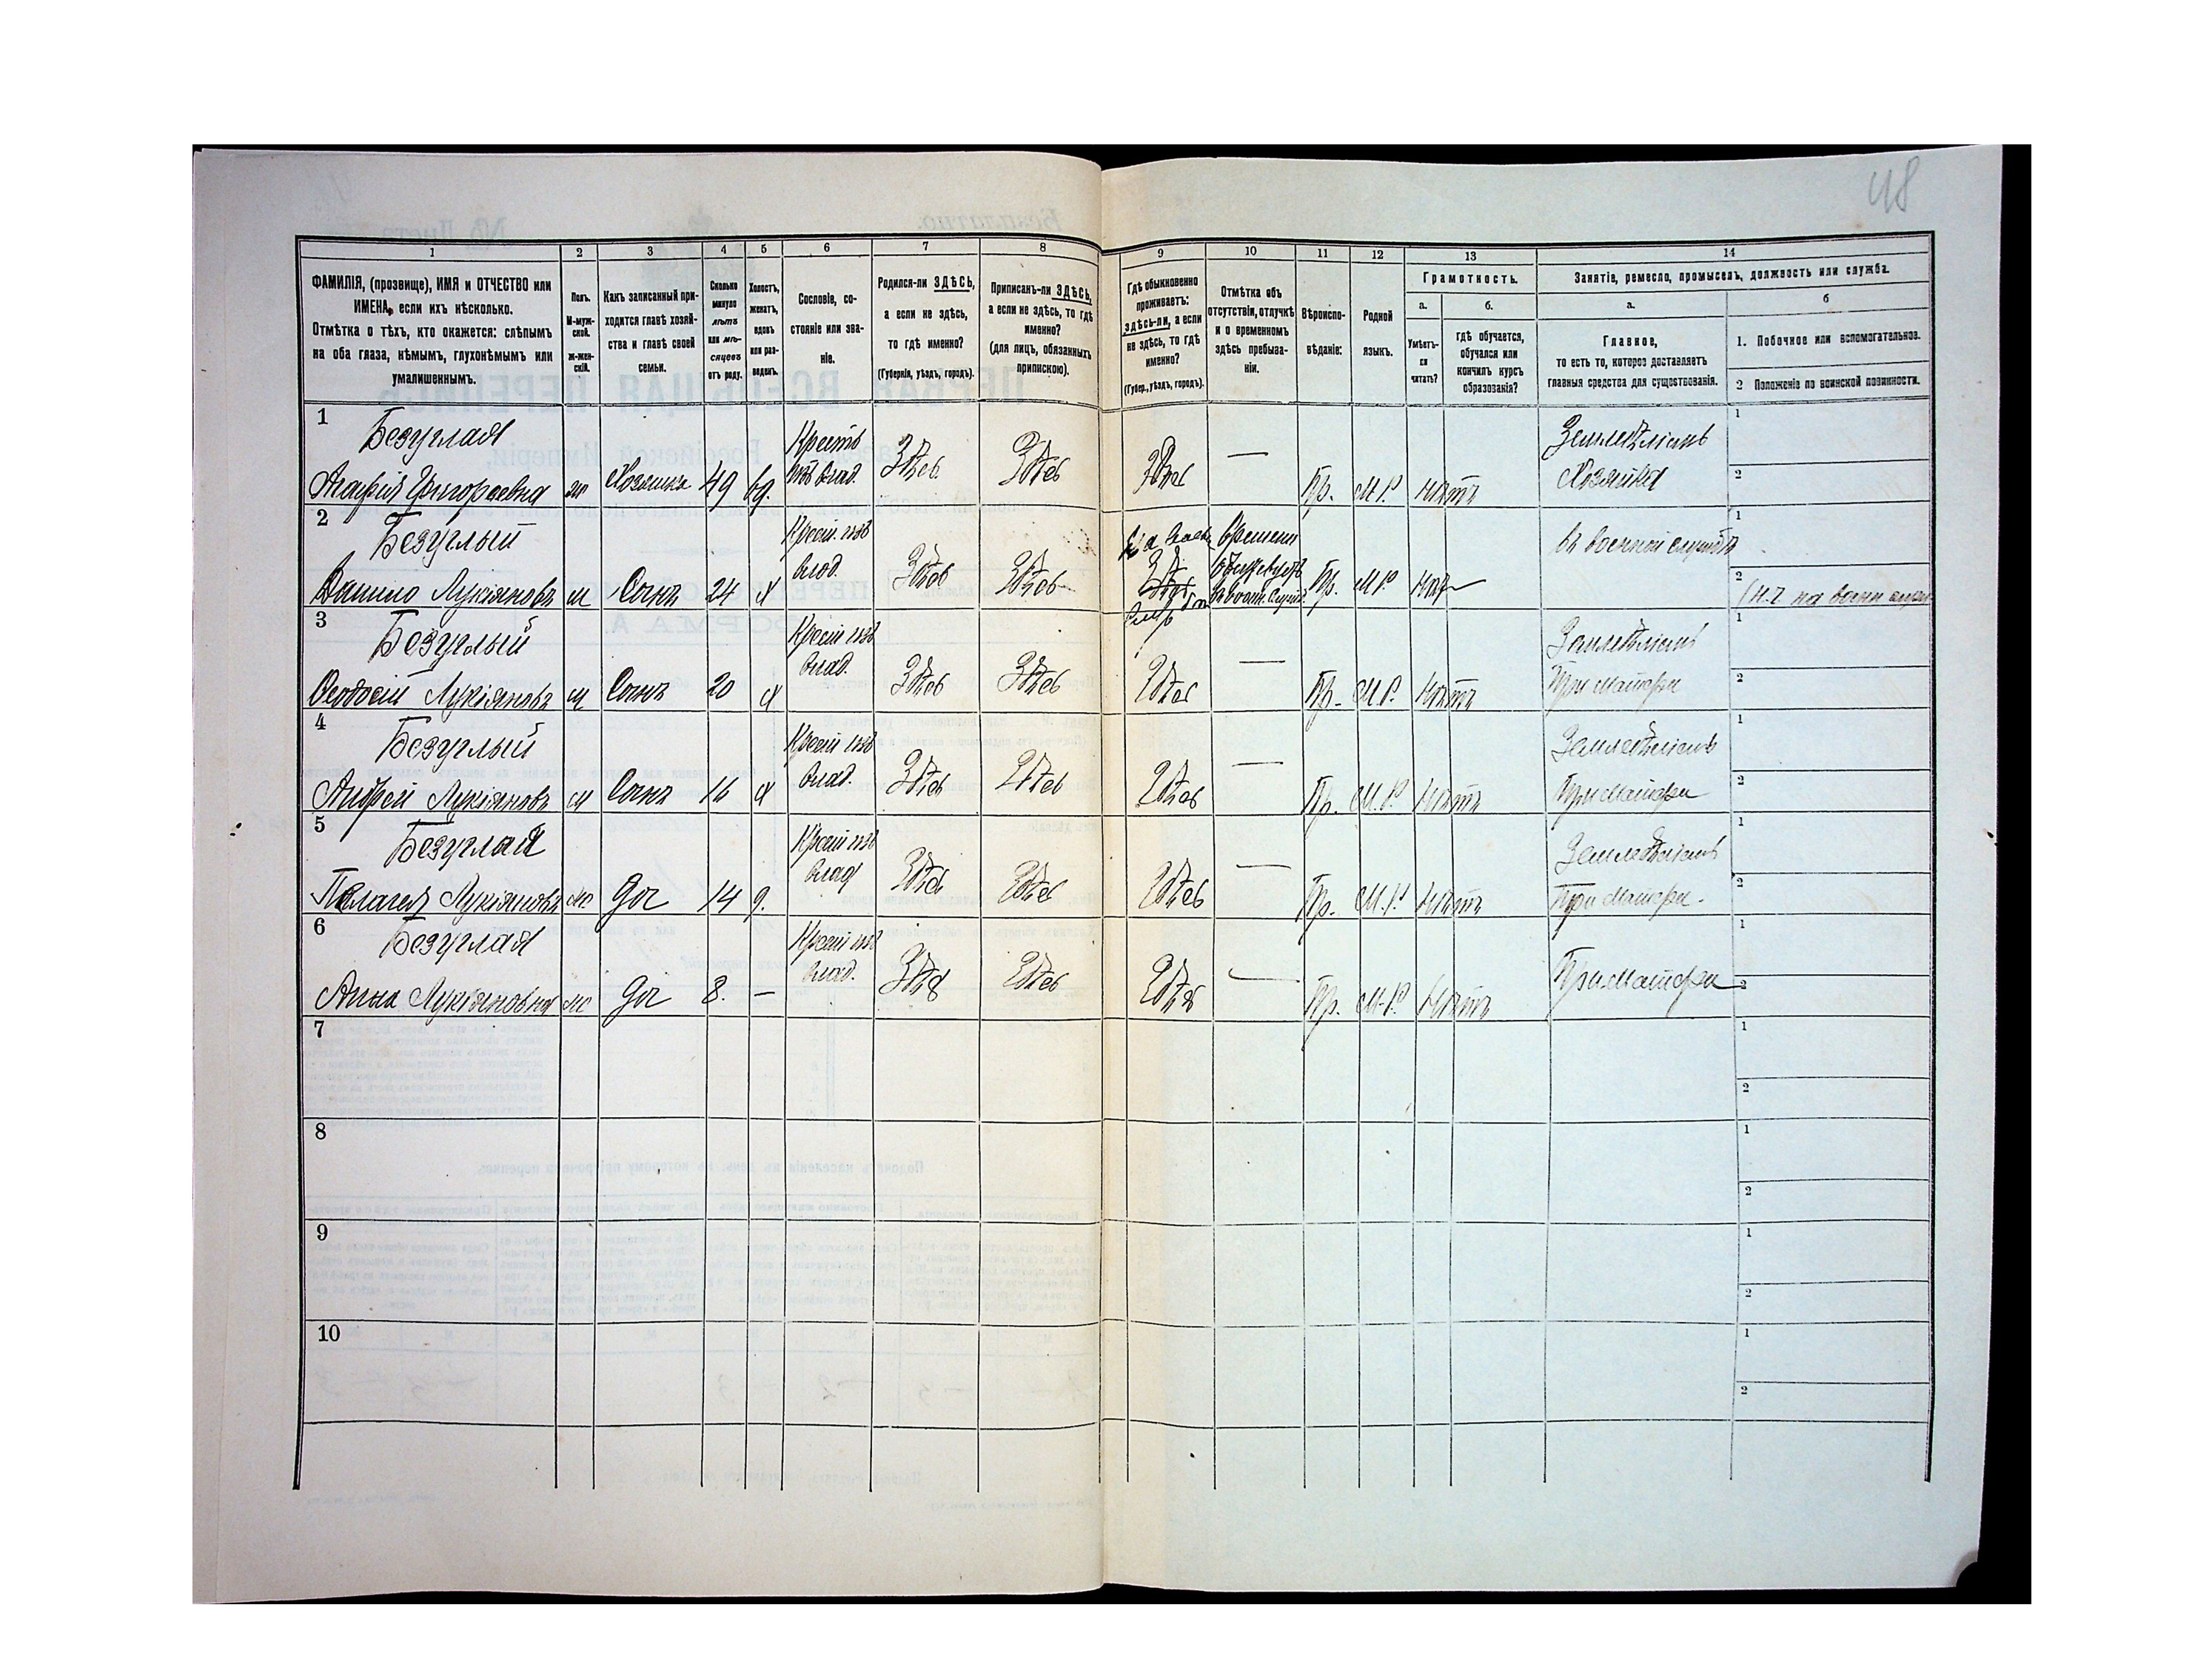 48
1
2
3
4
5
6
7
8
9
10
11
12
13
14
ФАМИЛІЯ, (прозвище), ИМЯ и ОТЧЕСТВО или
ИМЕНА, если ихъ нѣсколько.
Отмѣтка о тѣхъ, кто окажется: слѣпымъ
на оба глаза, нѣмымъ, глухонѣмымъ или
умалишеннымъ.
Полъ.
М-муж-
ской.
ж-жен-
скій.
Какъ записанный при-
ходится главѣ хозяй-
ства и главѣ своей
семьи.
Сколько
минуло
лѣтъ
или мѣ-
сяцевъ
отъ роду.
Холостъ,
женатъ,
вдовъ
или раз-
веденъ.
Сословіе, со-
стояніе или зва-
ніе.
Родился-ли ЗДѢСЬ,
а если не здѣсь,
то гдѣ именно?
(Губернія, уѣздъ, городъ).
Приписанъ-ли ЗДѢСЬ,
а если не здѣсь, то гдѣ
именно?
(для лицъ, обязанныхъ
припискою).
Гдѣ обыкновенно
проживаетъ:
здѣсь-ли, а если
не здѣсь, то гдѣ
именно?
(Губер., уѣздъ, городъ).
Отмѣтка объ
отсутствіи, отлучкѣ
и о временномъ
здѣсь пребыва-
ніи.
Вѣроиспо-
вѣданіе:
Родной
языкъ.
Грамотность.
а.
б.
Умѣетъ-
ли
читать?
гдѣ обучается,
обучался или
кончилъ курсъ
образованія?
Занятіе, ремесло, промыселъ, должность или служба.
а.
б
Главное,
то есть то, которое доставляетъ
главныя средства для существованія.
1. Побочное или вспомогательное.
2 Положеніе по воинской повинности.
1
Безуглая
Агафія Григореевна
ж
Хозяика
49
вд.
Крестъ
изъ влад.
Здѣсь
Здѣсь
Здѣсь
—
Пр.
М.Р.
Нѣтъ
Земледѣліемъ
Хозяйка
1
2
2
Безуглый
Данило Лукіяновъ
м
Сынъ
24
х
Крест. изъ
влад.
Здѣсь
Здѣсь
Здѣсь
Пр.
М.Р.
Нѣт
въ военной службѣ
1
2
3
Безуглый
Ѳеодосій Лукіяновъ
м
Сынъ
20
х
Крест изъ
влад.
Здѣсь
Здѣсь
Здѣсь
—
Пр.
М.Р.
Нѣтъ
Земледѣліемъ
При Матери
1
2
4
Безуглый
Андрей Лукіяновъ
м
Сынъ
16
х
Крест изъ
влад.
Здѣсь
Здѣсь
Здѣсь
—
Пр.
М.Р.
Нѣтъ
Земледѣліемъ
При Матери
1
2
5
Безуглая
Пелагея Лукіяновъ
ж
Доч
14
д.
Крест изъ
влад
Здѣсь
Здѣсь
Здѣсь
—
Пр.
М.Р.
Нѣтъ
Земледѣліемъ
При Матери.
1
2
6
Безуглая
Анна Лукіяновна
ж
Доч
8.
—
Крест изъ
влад.
Здѣсь
Здѣсь
Здѣсь
—
Пр.
М-Р.
Нѣтъ
При Матери
1
2
7
1
2
8
1
2
9
1
2
10
1
2